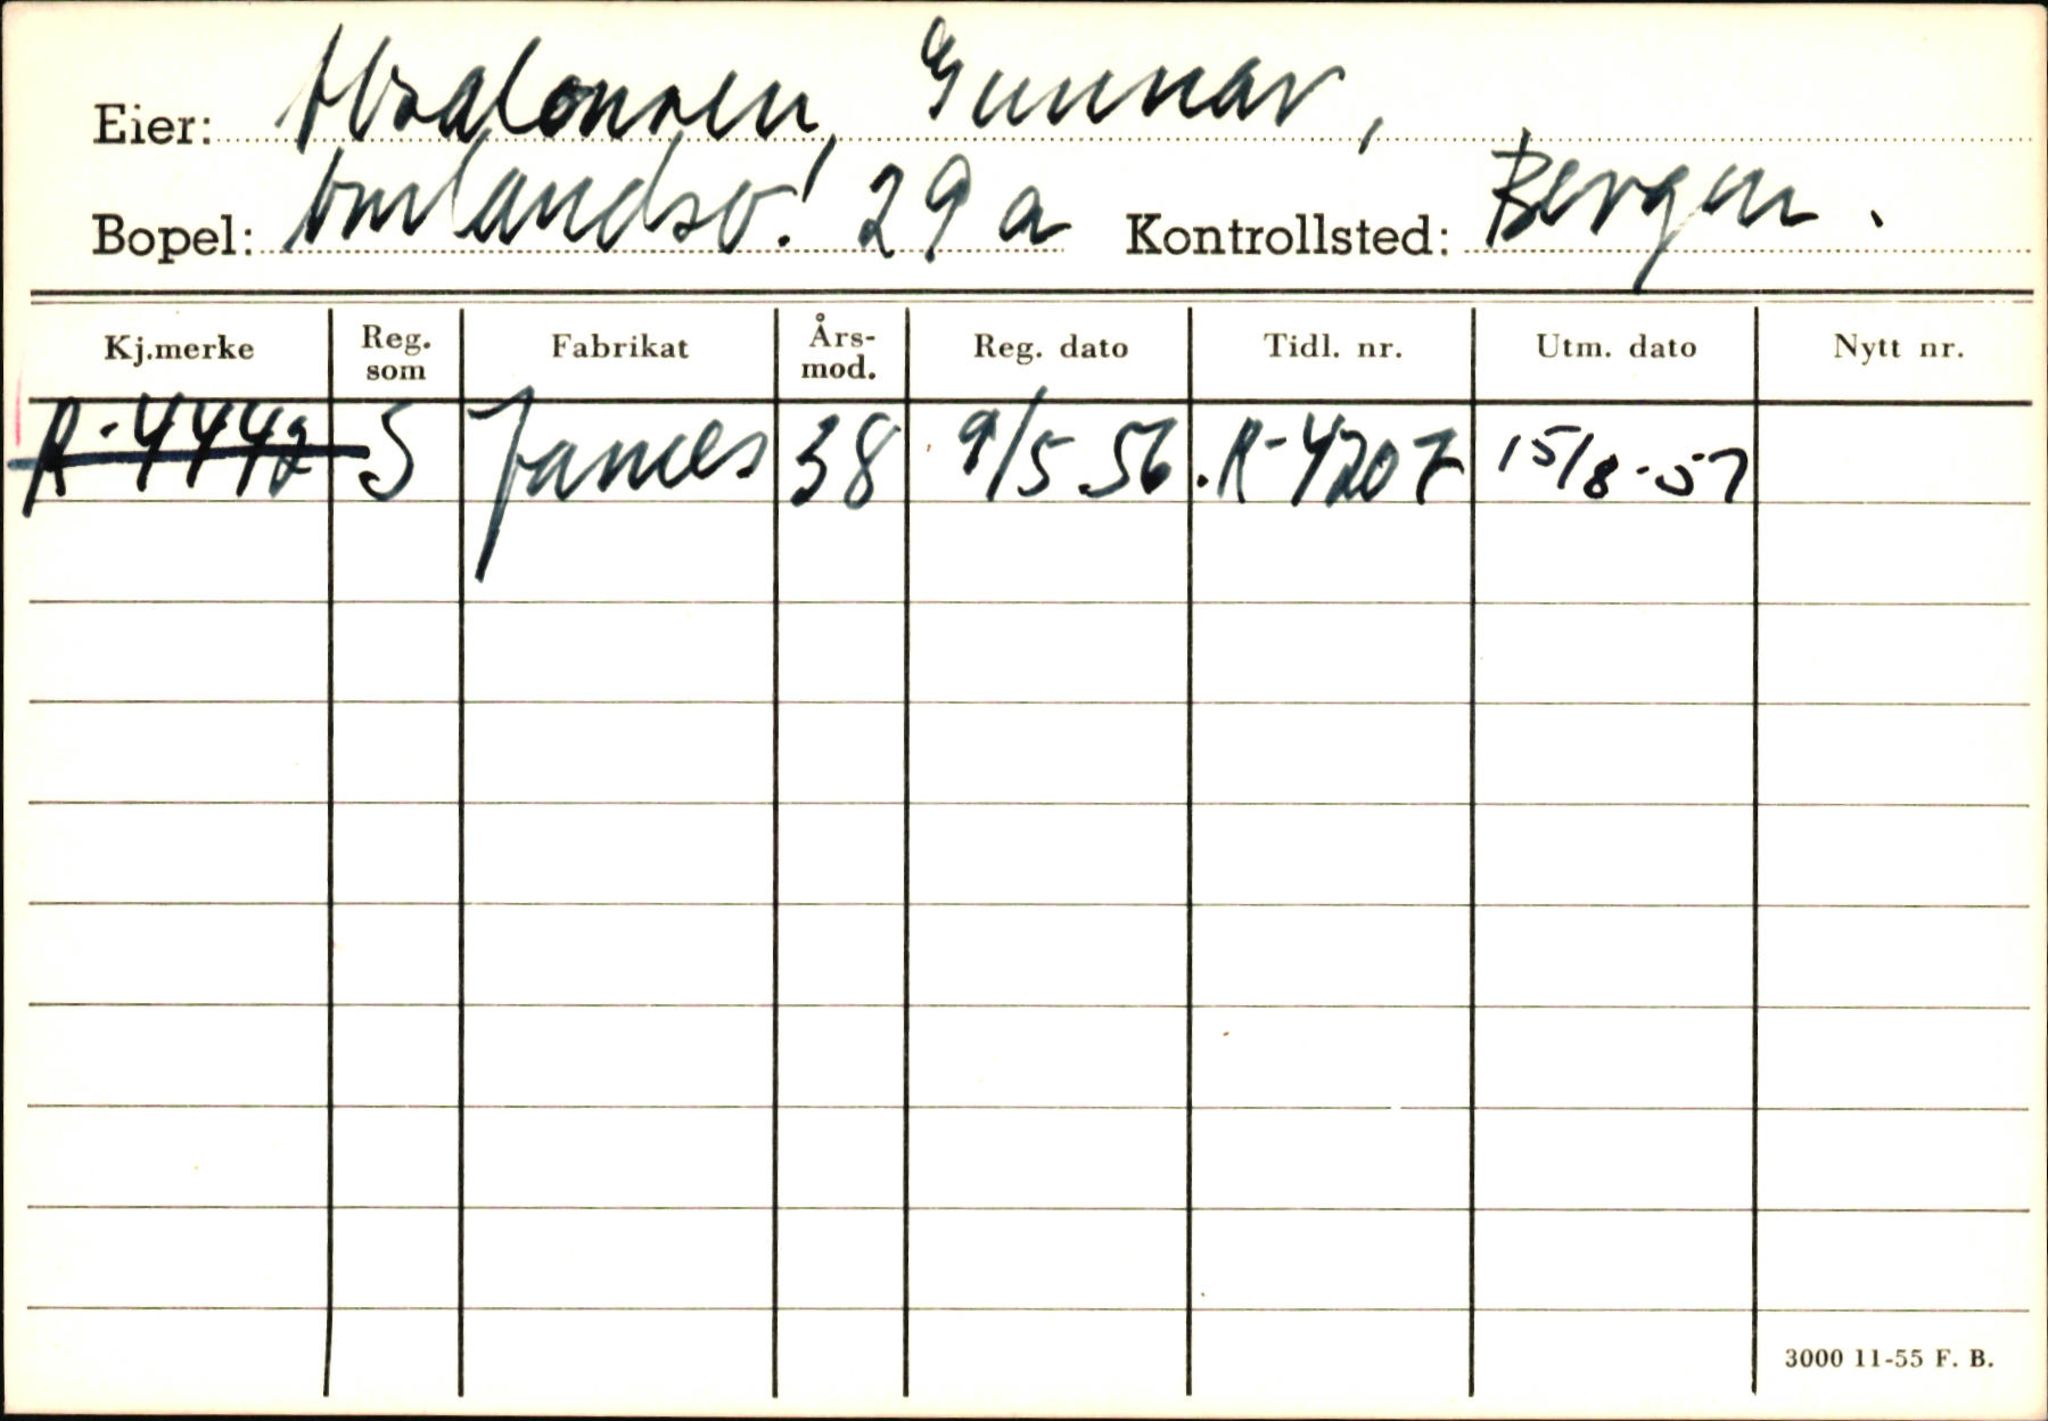 Eier: Absalonsen, Gunnar,
Bopel: 29 a Kontrollsted: Bergen.
Kj.merke Reg. som Fabrikat Års-mod. Reg. dato Tidl. nr. Utm. dato Nytt nr.
R-4442 S James 38 9/5.56. R-4207 15/8-57
3000 11-55 F. B.